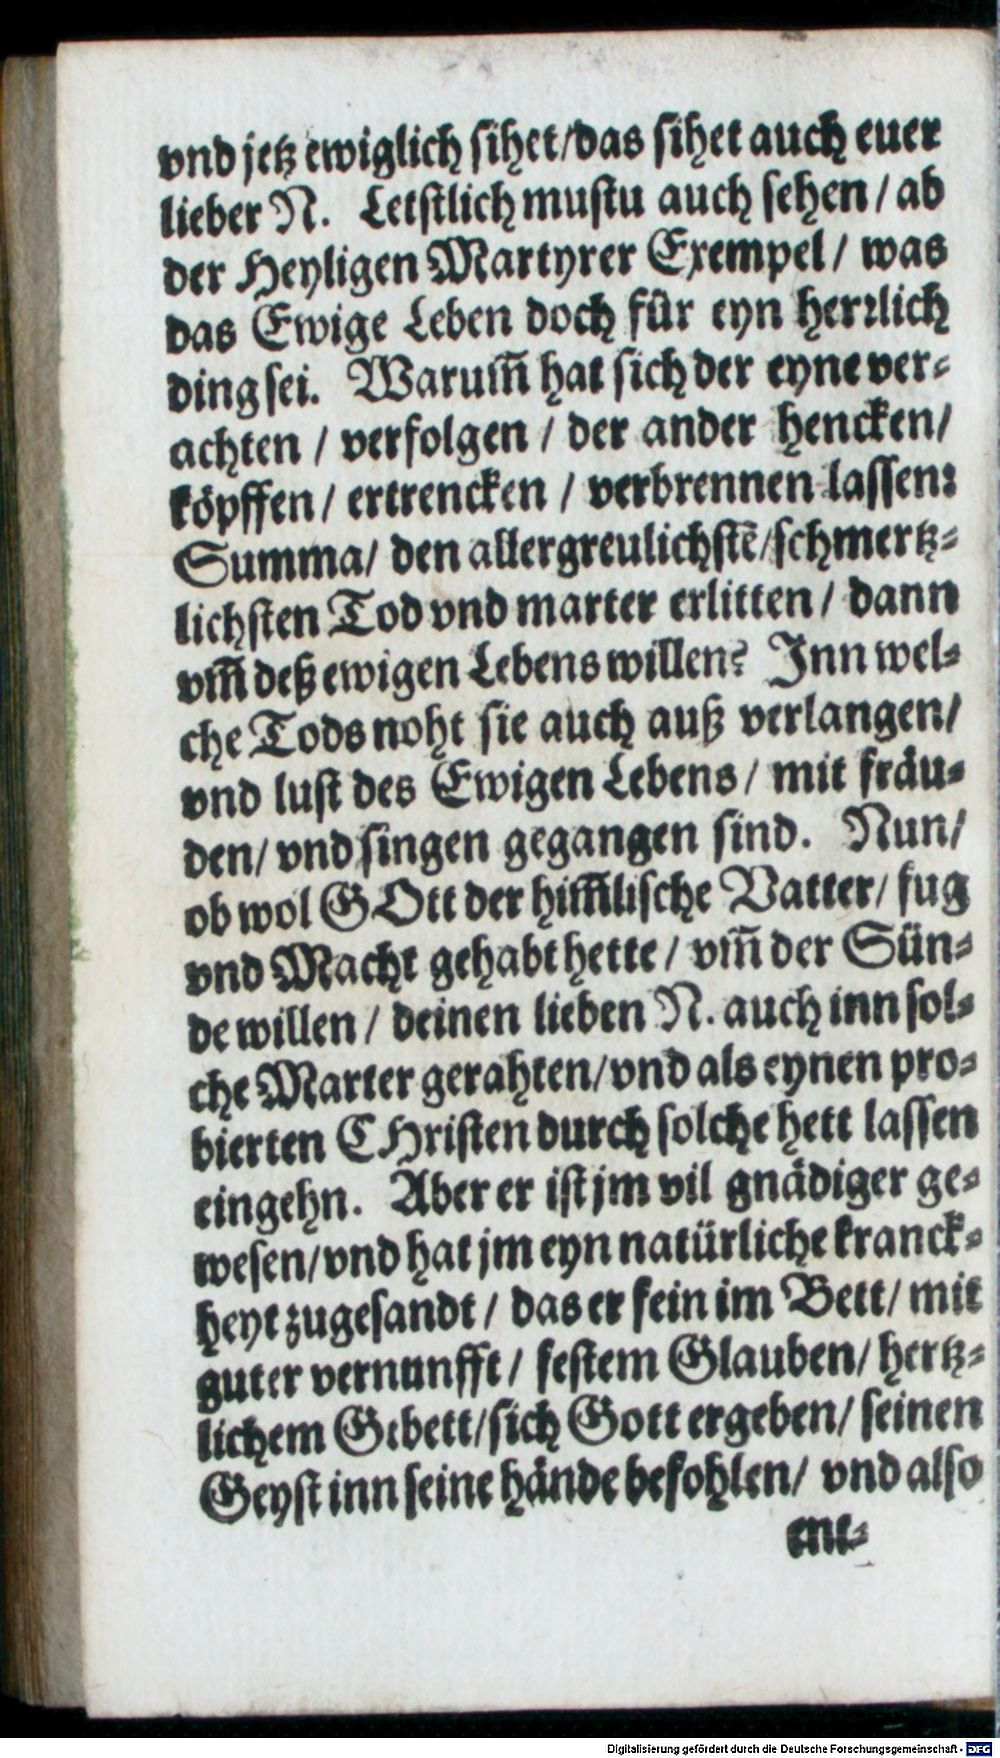 vnd jetz ewiglich sihet/das sihet auch euer
lieber N. Letstlich mustu auch sehen / ab
der Heyligen Martyrer Exempel / was
das Ewige Leben doch für eyn herrlich
ding sei. Warum̃ hat sich der eyne ver-
achten / verfolgen / der ander hencken/
köpffen / ertrencken / verbrennen lassen:
Summa/ den allergreulichstẽ/schmertz-
lichsten Tod vnd marter erlitten / dann
vm̃ deß ewigen Lebens willen? Inn wel-
che Tods noht sie auch auß verlangen/
vnd lust des Ewigen Lebens / mit fräu-
den/ vnd singen gegangen sind. Nun/
ob wol GOtt der him̃lische Vatter/ fug
vnd Macht gehabt hette / vm̃ der Sün-
de willen / deinen lieben N. auch inn sol-
che Marter gerahten/vnd als eynen pro-
bierten CHristen durch solche hett lassen
eingehn. Aber er ist jm vil gnädiger ge-
wesen/vnd hat jm eyn natürliche kranck-
heyt zugesandt / das er fein im Bett/ mit
guter vernunfft / festem Glauben/ hertz-
lichem Gebett/sich Gott ergeben/ seinen
Geyst inn seine hände befohlen/ vnd also
ent-
Digitalisierung gefördert durch die Deutsche Forschungsgemeinschaft - DFG